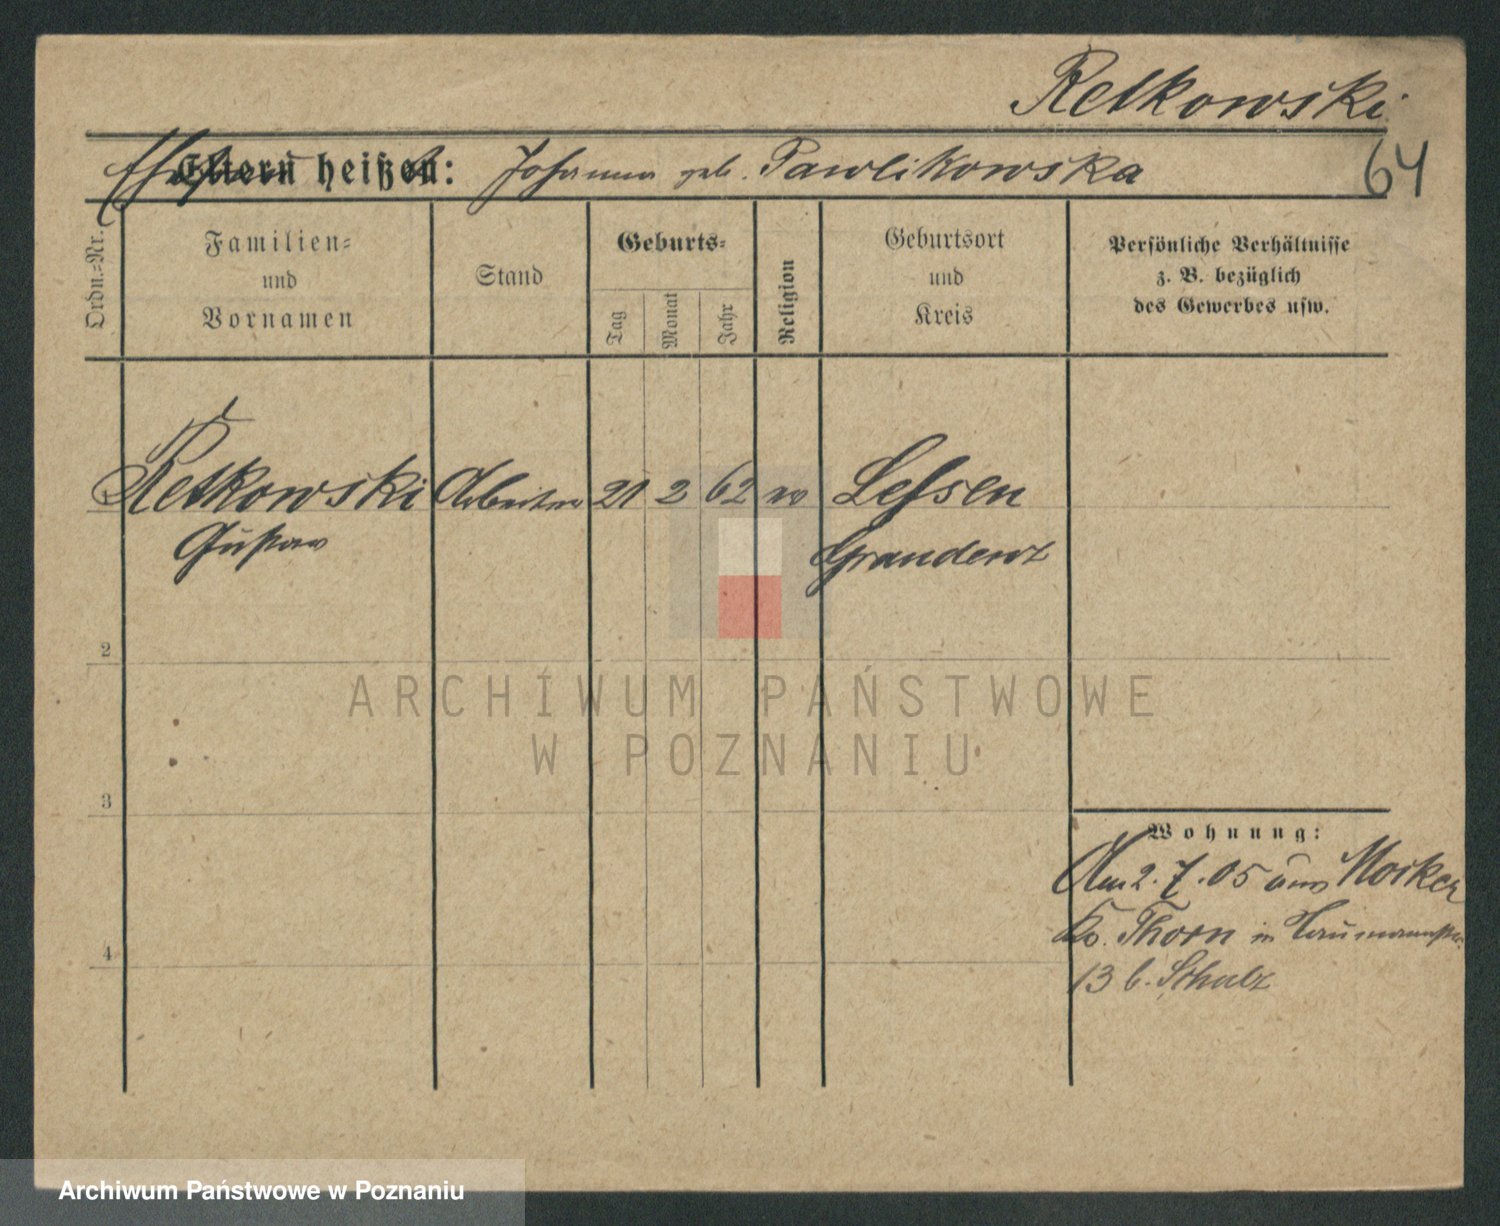 Retkowski
64
Eltern heißen: Johanna geb. Pawlikowska
Ordn.-Nr.
Familien-
und
Vornamen
Stand
Geburts-
Tag
Monat
Jahr
Religion
Geburtsort
und
Kreis
Persönliche Verhältnisse
z. B. bezüglich
des Gewerbes usw.
Retkowski Arbeiter 21 2 62 Lessen
Gustav Graudenz
2
3
4
Wohnung:
Am 2. 7. 05 aus Mocker
Kr. Thorn in
13 b. Schulz
ARCHIWUM PAŃSTWOWE
W POZNANIU
Archiwum Państwowe w Poznaniu